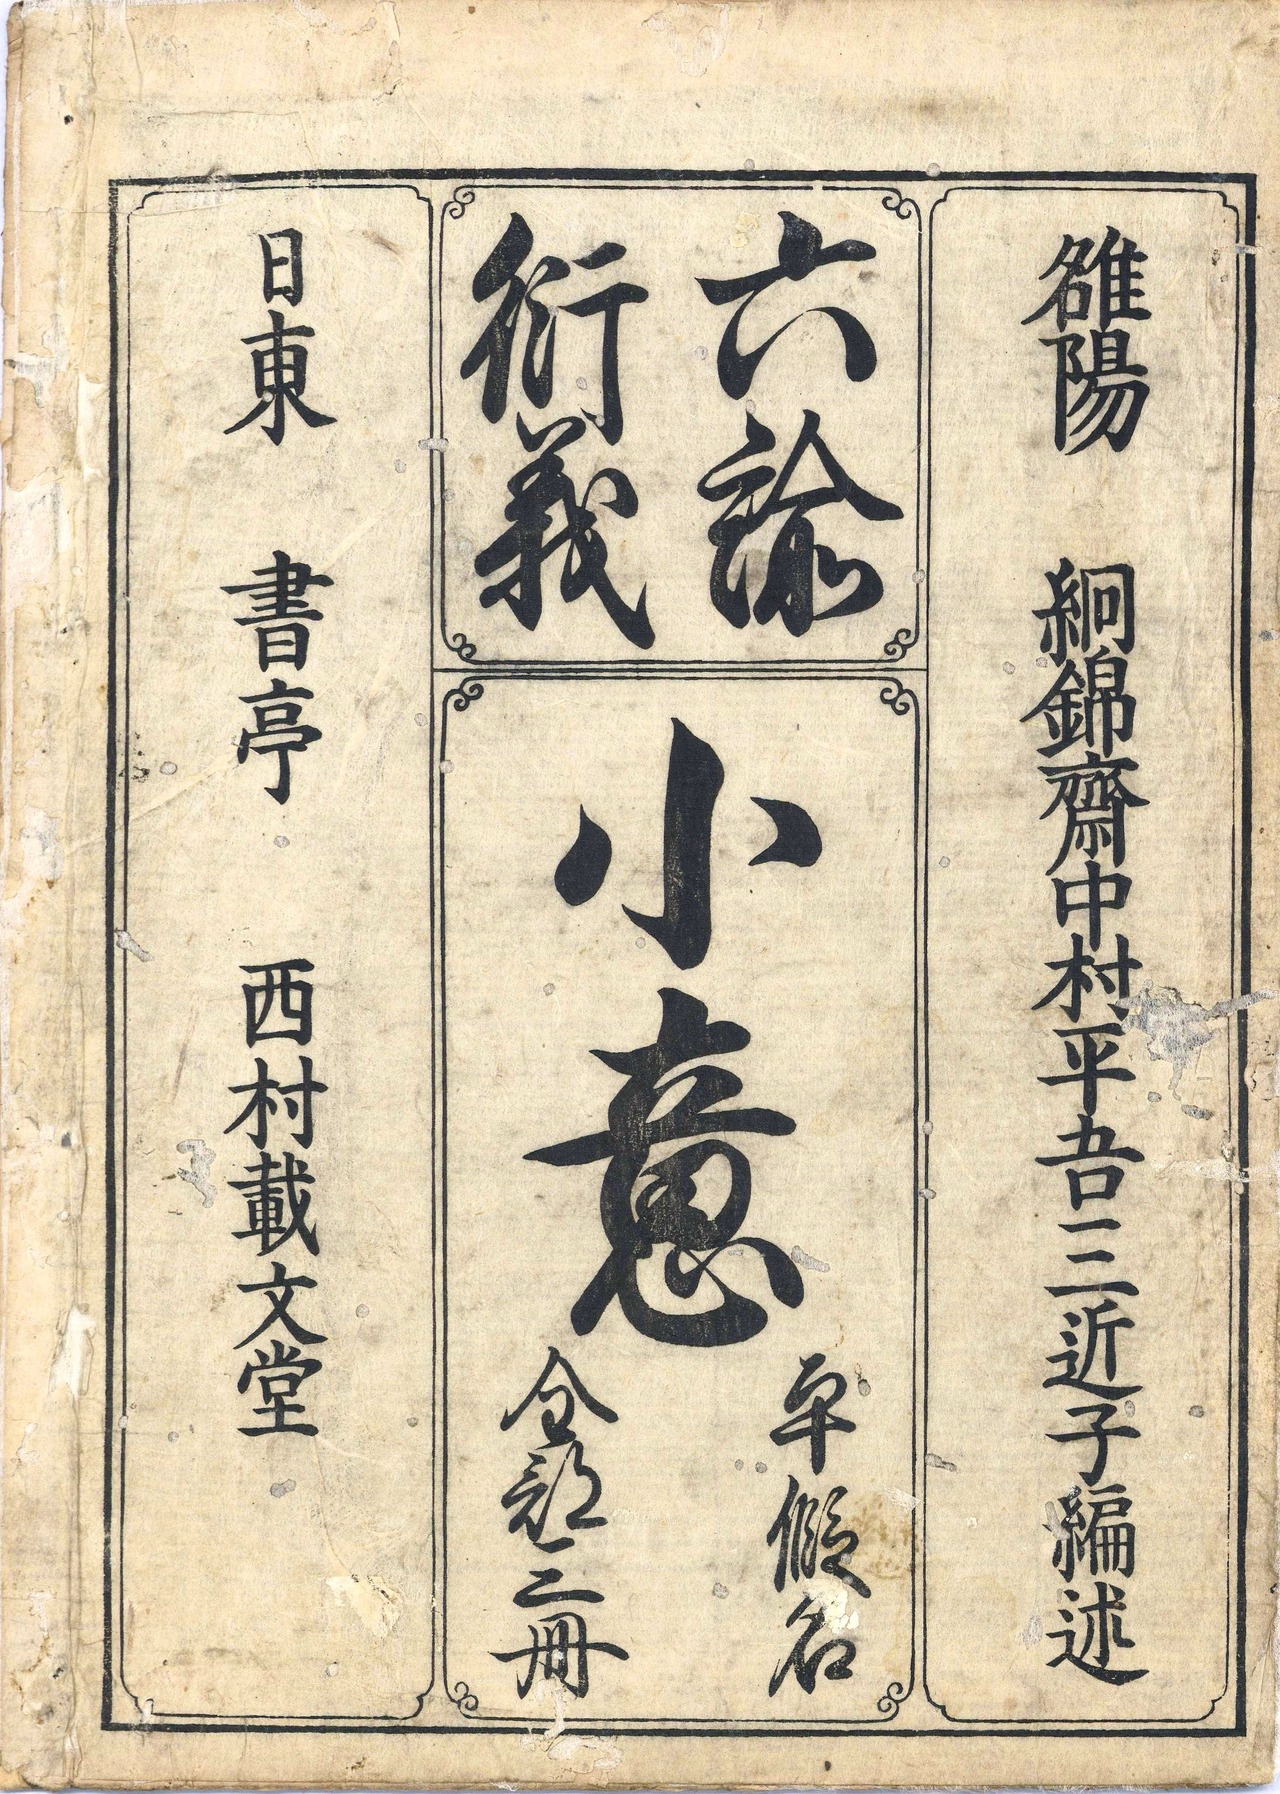 雒陽 絅錦齋中村平吾三近子編述
六諭
衍義
小意
平假名
全部三冊
日東 書亭 西村載文堂